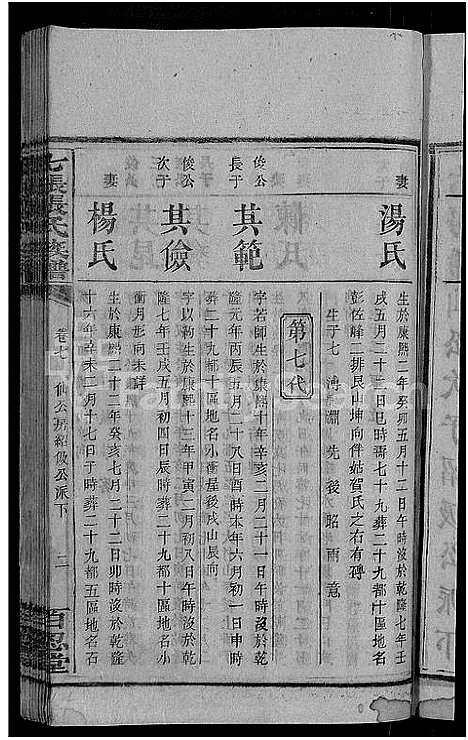 妻
湯氏
生於康熙二年癸卯五月十二日午時沒於乾隆七年壬
戌五月二十二日巳時壽七十九葬二十九都十區地名
彭佐峰二排艮山坤向伴姑賀氏之右有碑
生子七 濤 淵 先 後 昭 雨 意
第七代
俊公
長子
其範
字若師生於康熙十年辛亥二月二十一日午時沒於乾
隆元年丙辰五月二十八日酉時本年六月初一日申時
葬二十九都十區地名小衝屋後戌山辰向
俊公
次子
其儉
字以約生於康熙十三年甲寅二月初八日午時沒於乾
隆七年壬戌五月初四日辰時葬二十九都十區地名小
衝月形向未詳
妻
楊氏
生於康熙二十二年癸亥七月二十二日卯時沒於乾隆
十六年辛未二月十七日子時葬二十九都五區地名石
七張張氏族譜
卷七
仙公房紹俊公派下
二
百忍堂